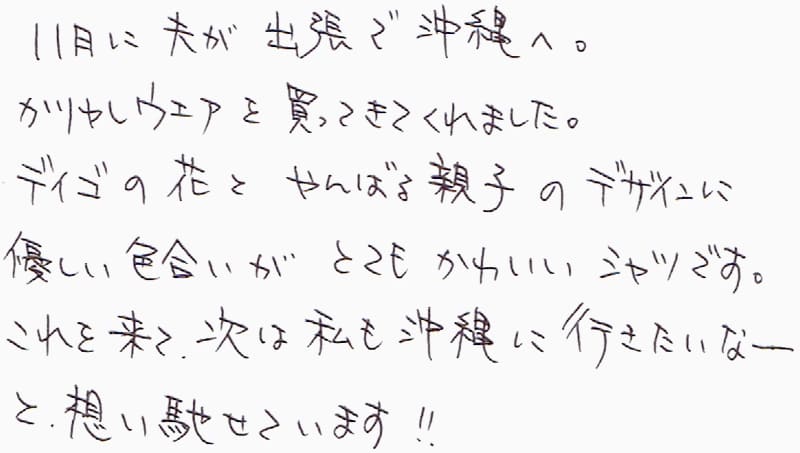 11月に夫が出張で沖縄へ。
かりゆしウエアを買ってきてくれました。
デイゴの花と やんばる親子のデザインに
優しい色合いが とてもかわいいシャツです。
これを来て、次は私も沖縄に行きたいなー
と、想い馳せています!!